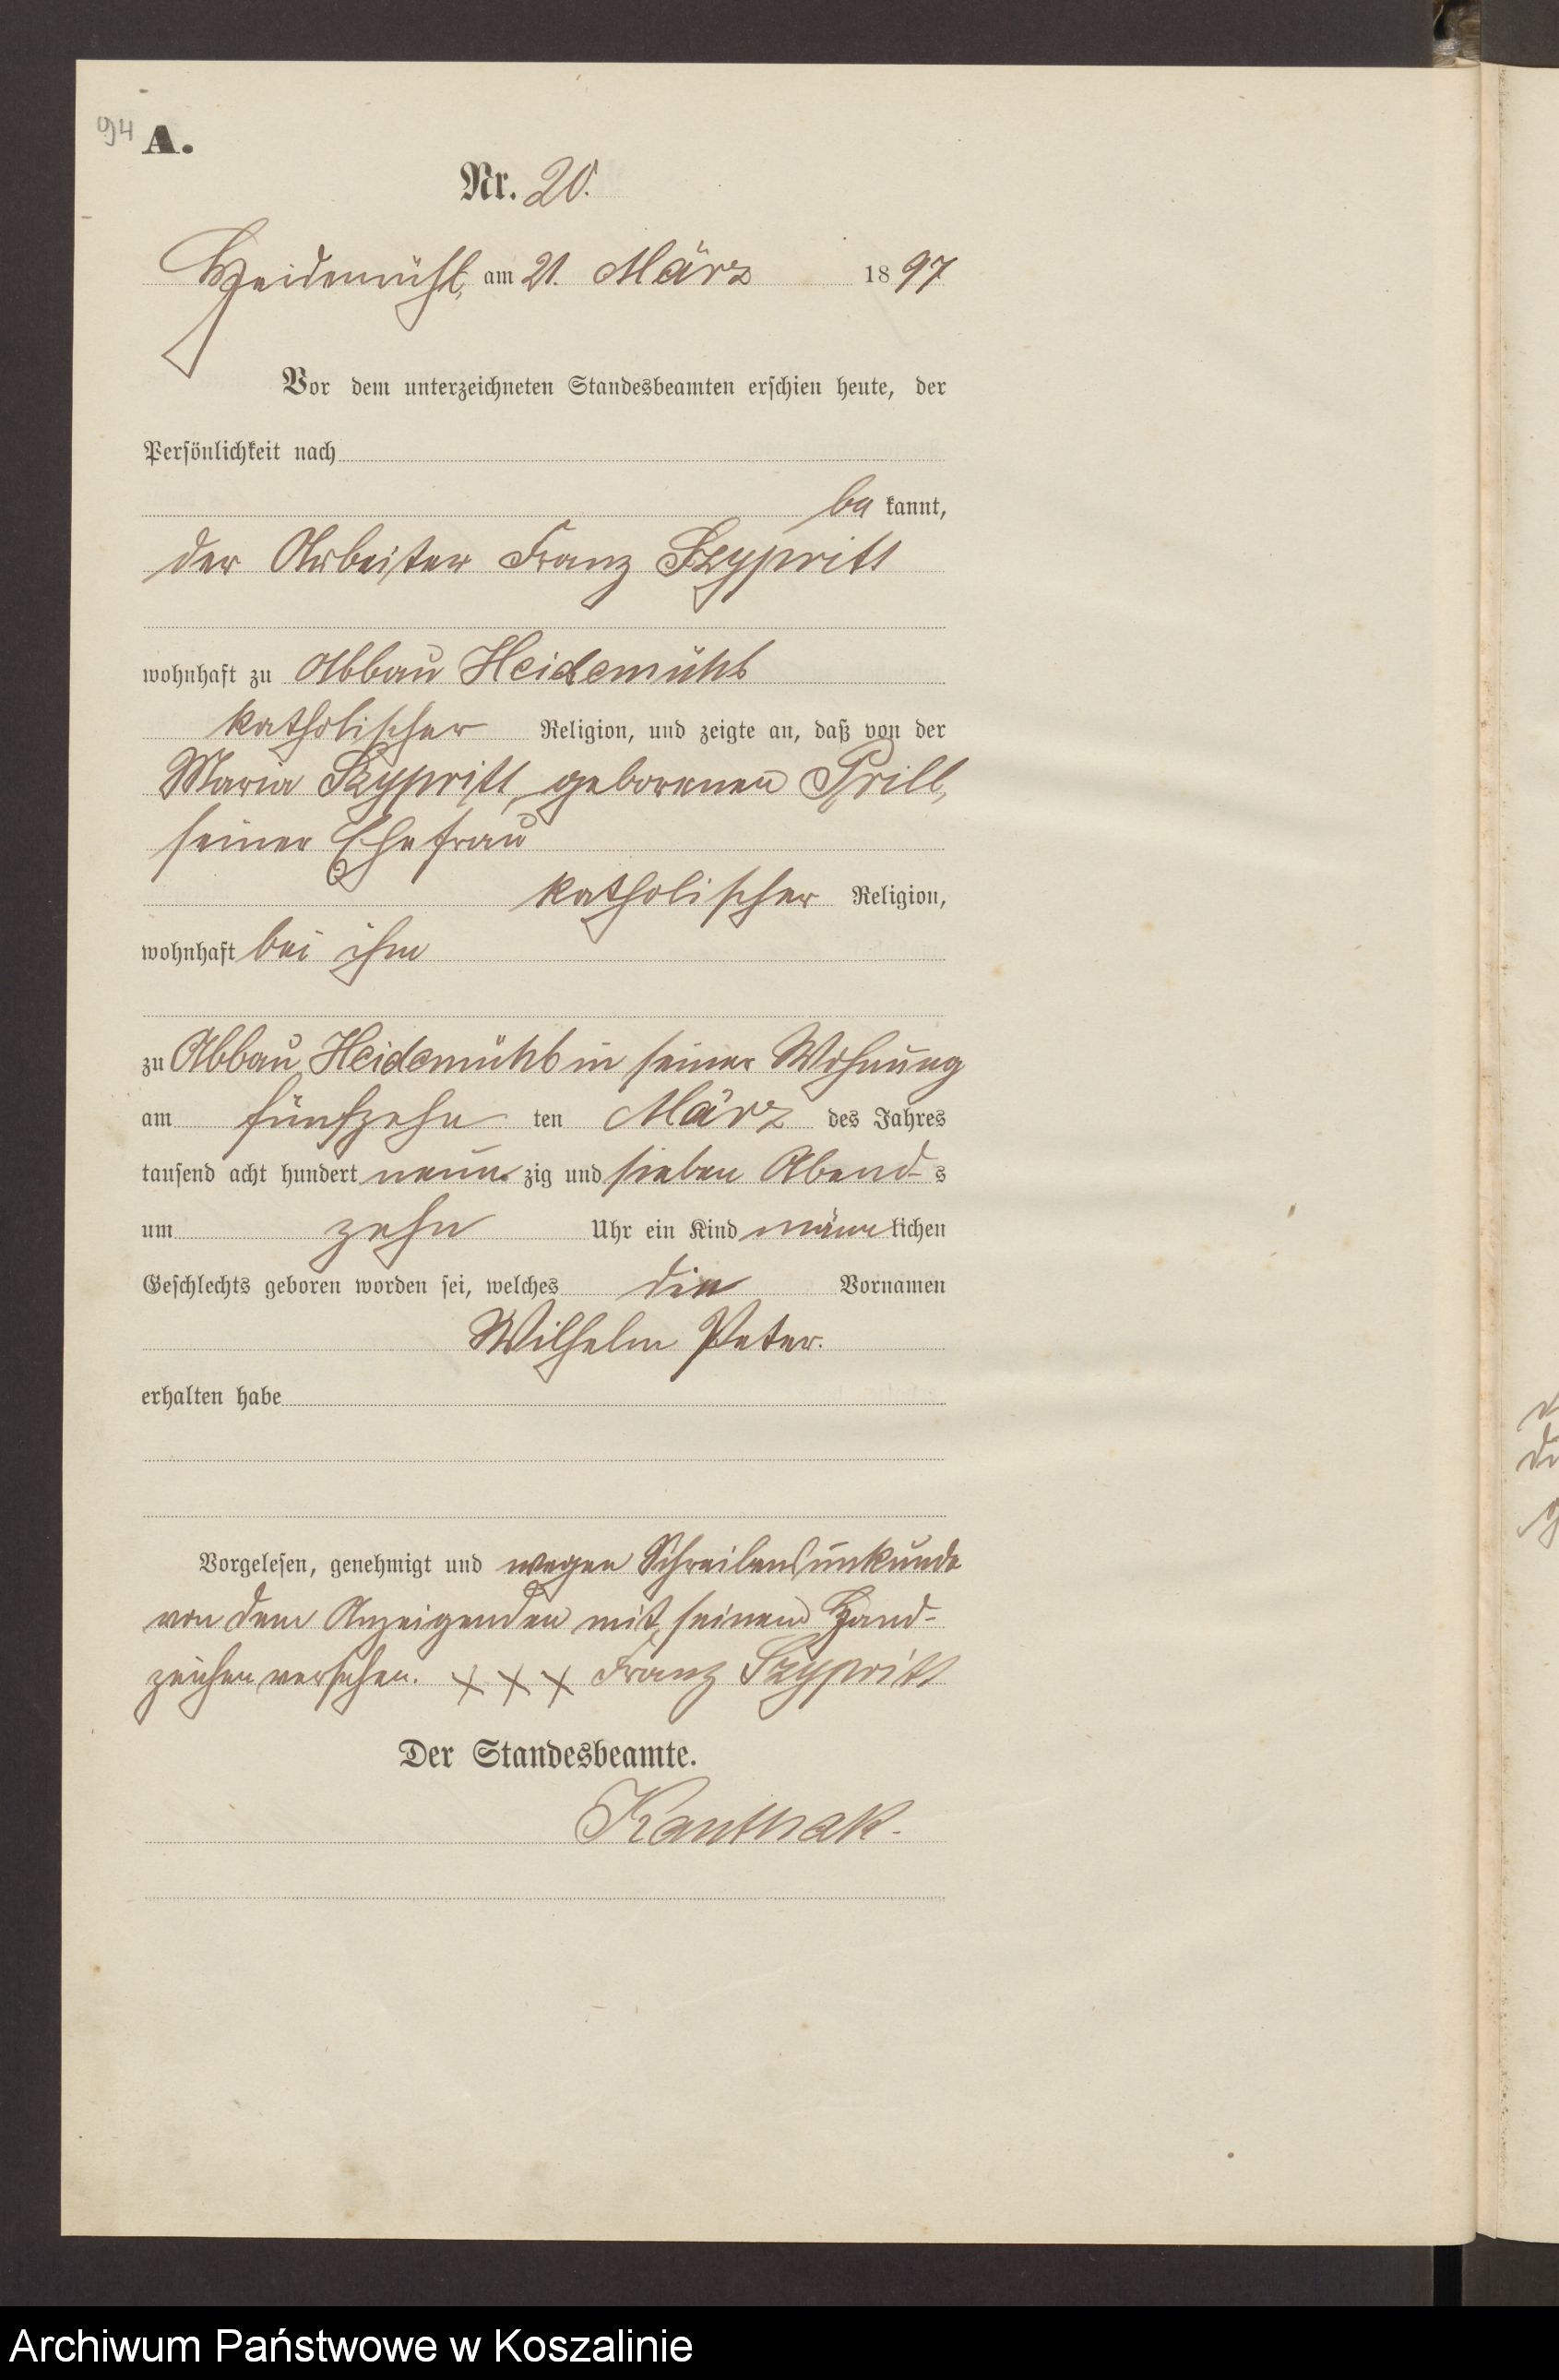 94 A.
Nr. 20.
Heidemühl, am 21. März 1897
Vor dem unterzeichneten Standesbeamten erschien heute, der
Persönlichkeit nach
be kannt,
der Arbeiter Franz Szypritt
wohnhaft zu Abbau Heidemühl
katholischer Religion, und zeigte an, daß von der
Maria Szypritt, geborenen Prill,
seiner Ehefrau
katholischer Religion,
wohnhaft bei ihm
zu Abbau Heidemühl in seiner Wohnung
am fünfzehn ten März des Jahres
tausend acht hundert neun zig und sieben Abend s
um zehn Uhr ein Kind männ lichen
Geschlechts geboren worden sei, welches die Vornamen
Wilhelm Peter.
erhalten habe
Vorgelesen, genehmigt und wegen Schreibensunkunde
von dem Anzeigenden mit seinem Hand-
zeichen versehen. X X X Franz Szypritt
Der Standesbeamte.
Kanthak.
Archiwum Państwowe w Koszalinie